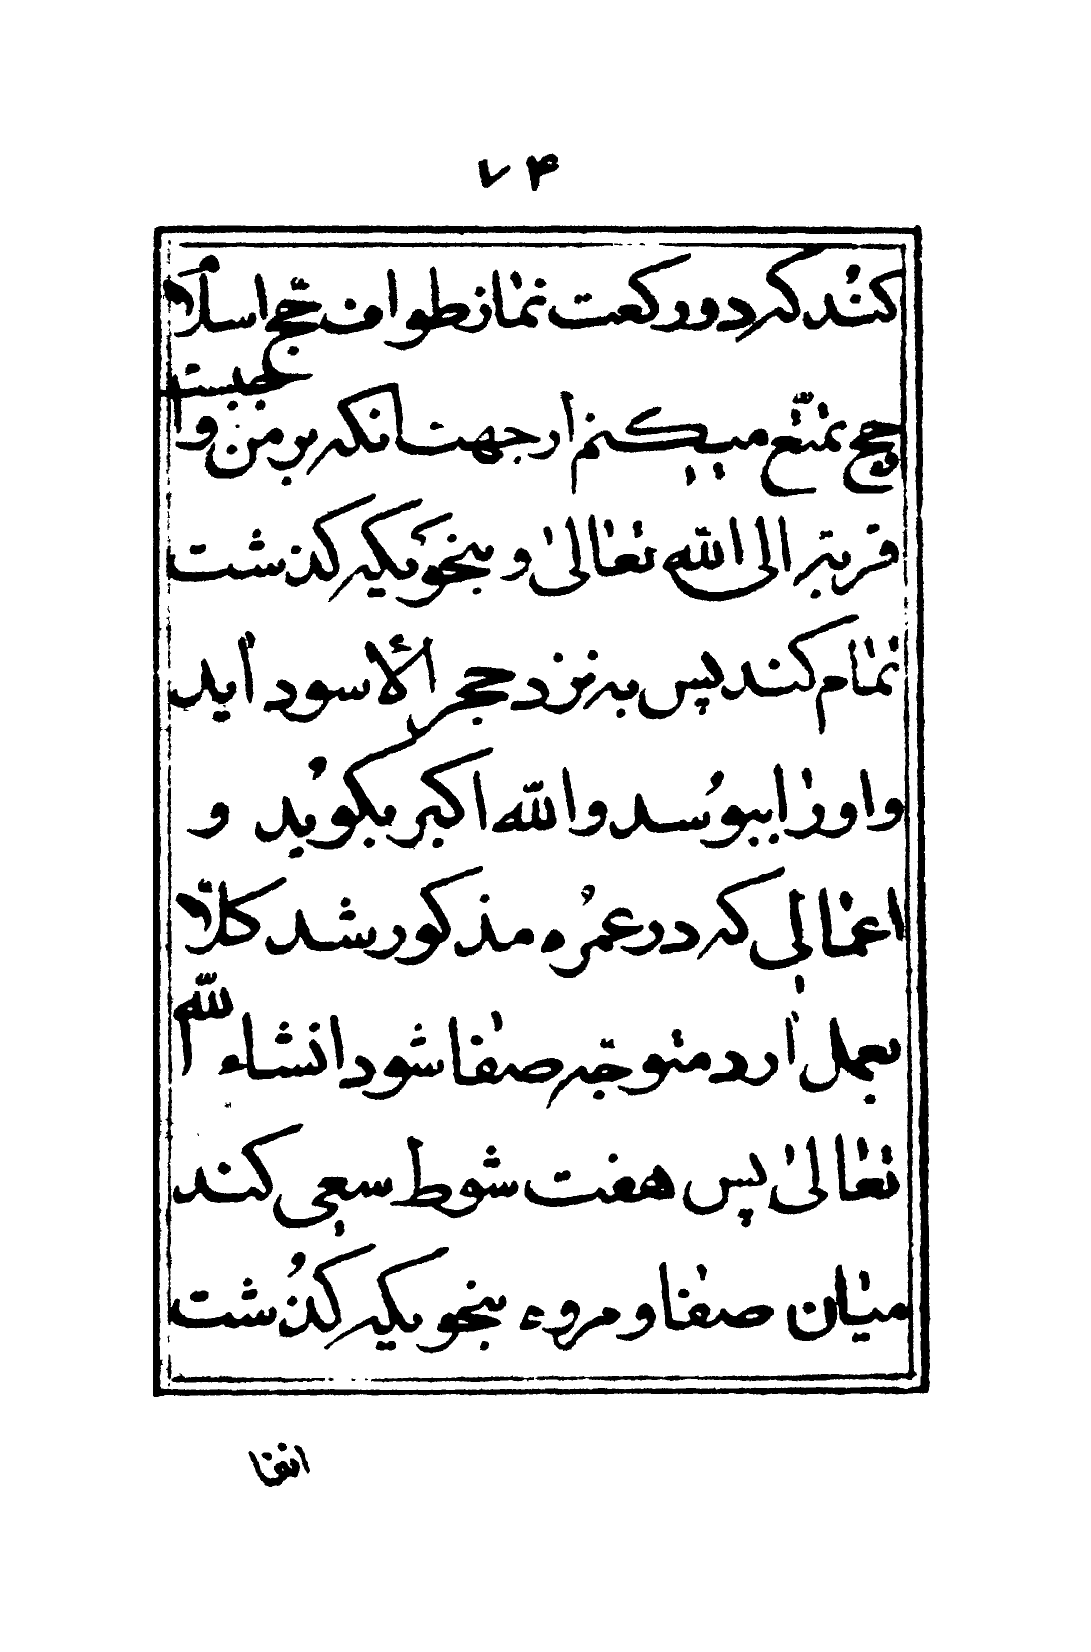 ۷۴
کند که دو رکعت نماز طواف حج اسلام
حج تمتع میکنم از جهت انکه بر من واجبست
قربة الی الله تعالیٰ و بنحویکه گذشت
تمام کند پس به نزد حجر الأسود اید
واو را ببوسد والله اکبر بگوید و
اعمالی که در عمره مذکور شد کلا
بعمل ارد متوجه صفا شود انشاء الله
تعالیٰ پس هفت شوط سعی کند
میان صفا و مروه بنحویکه گذشت
انفا